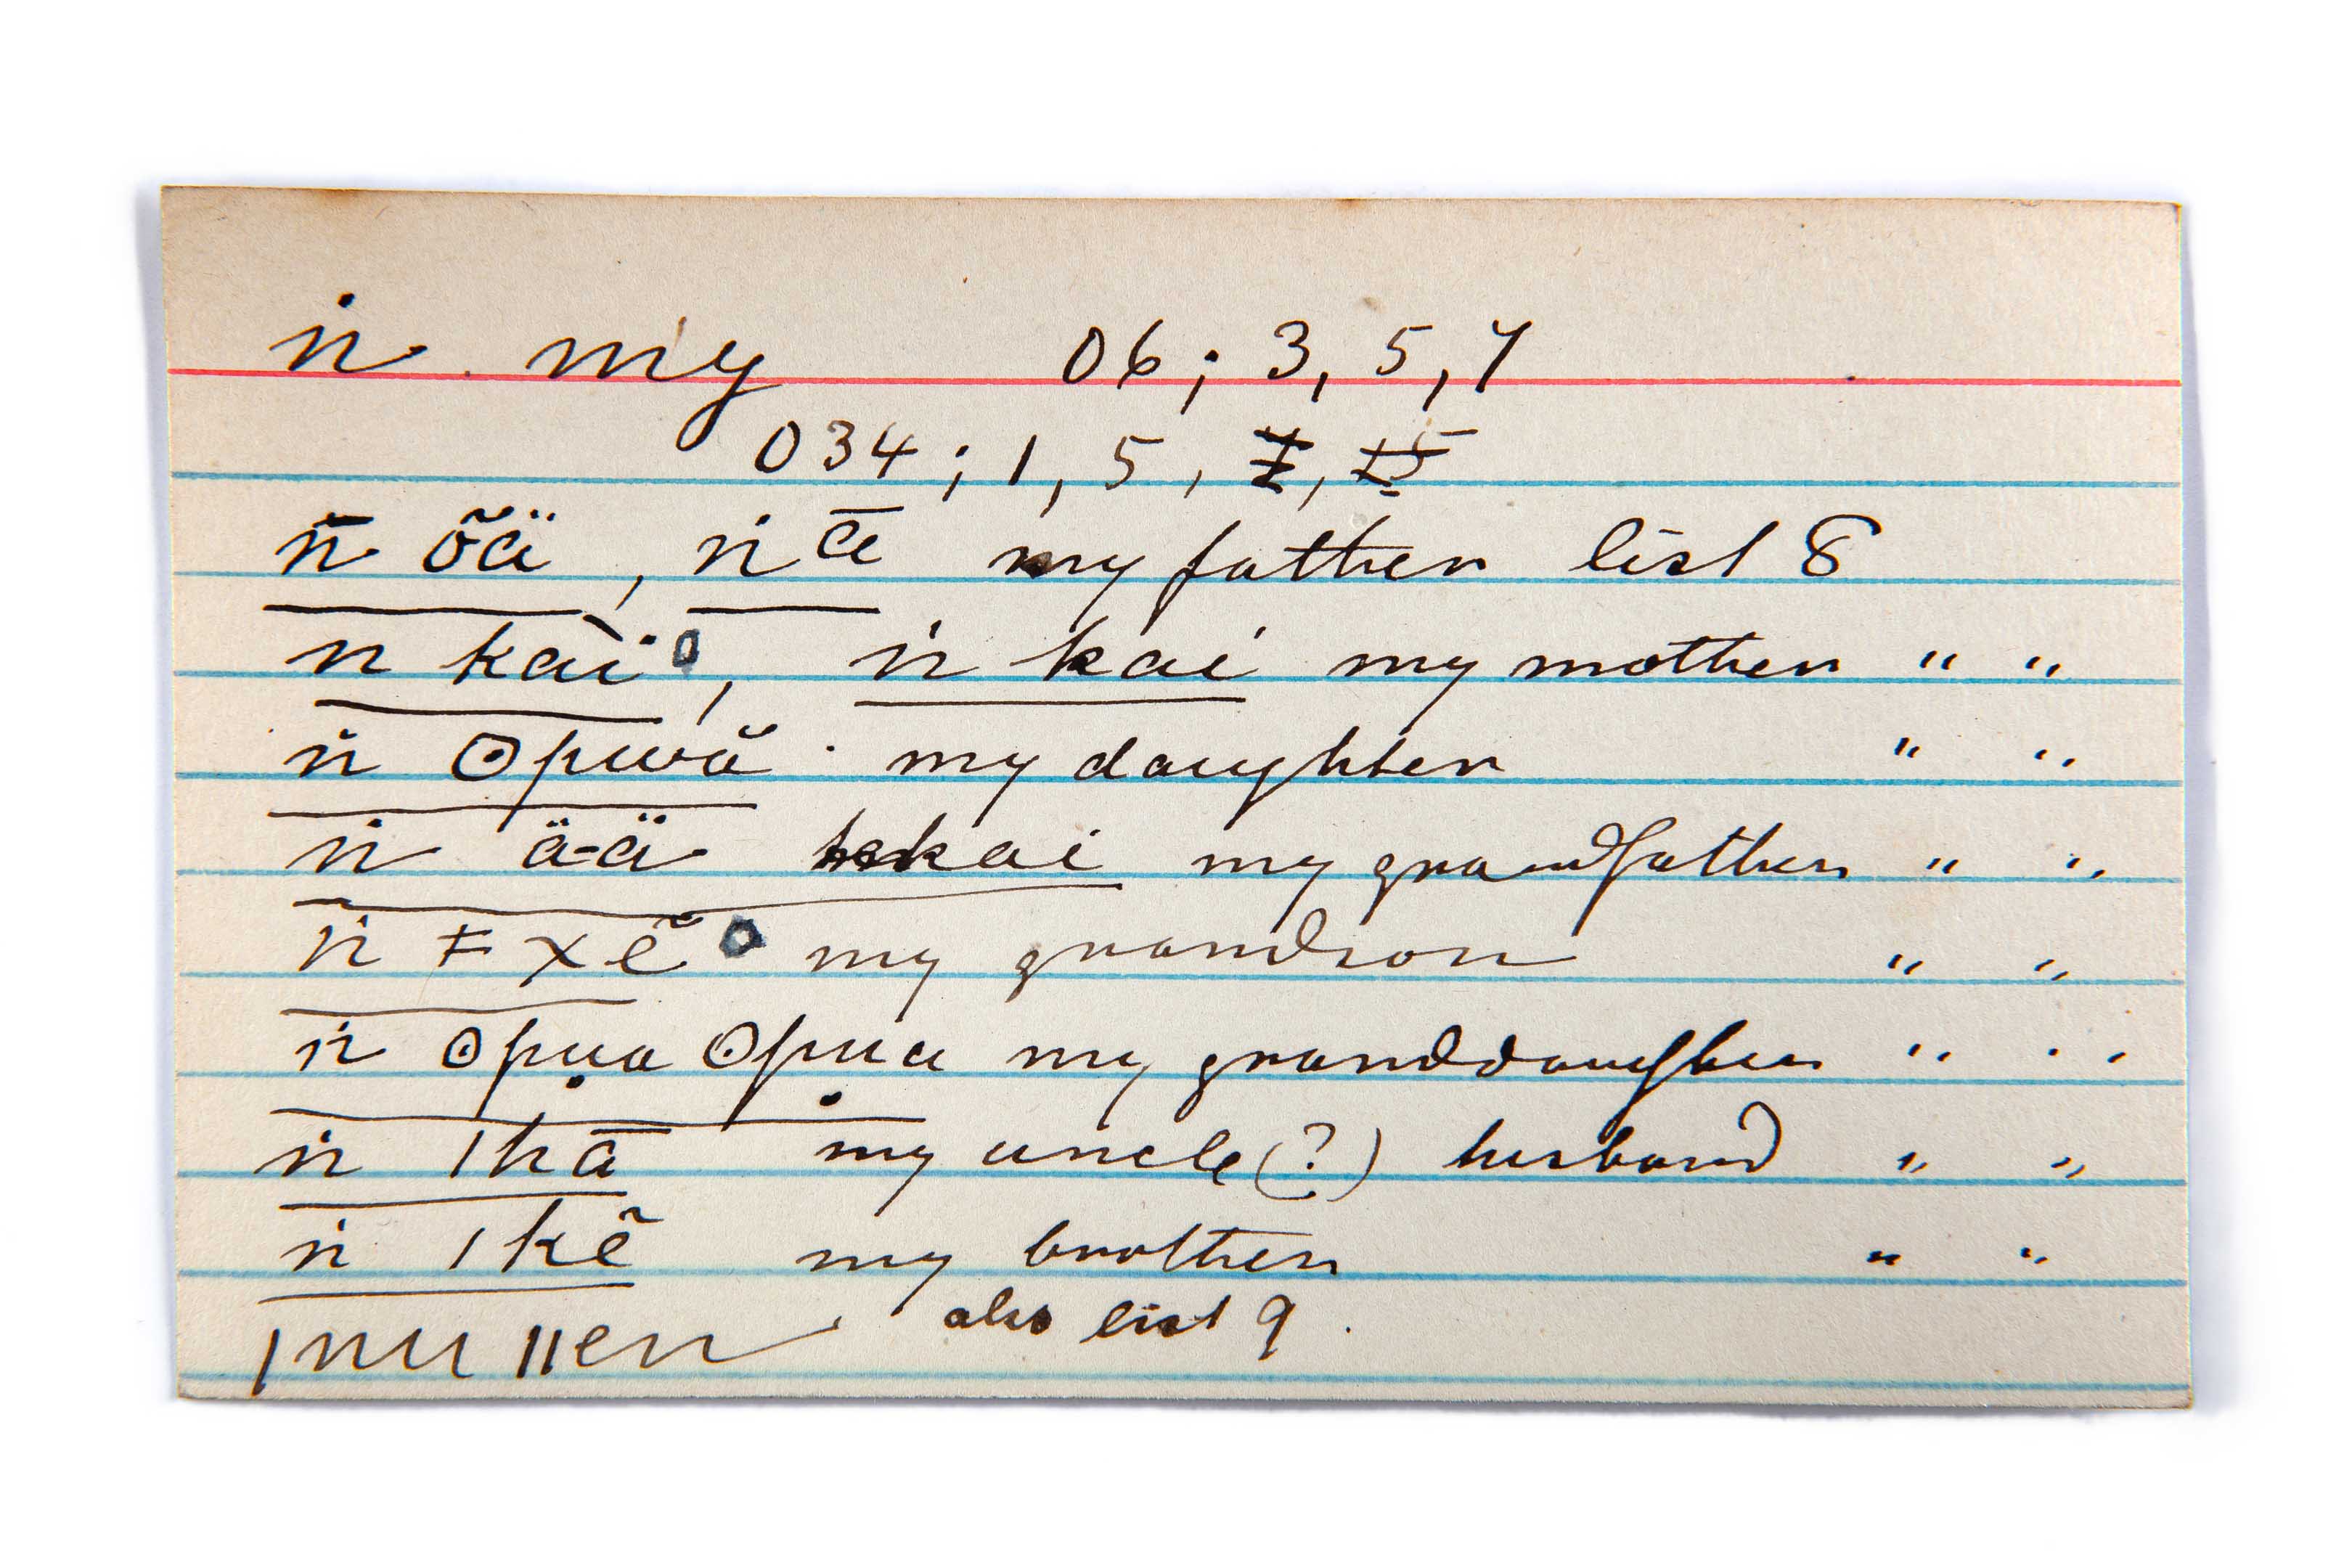 ṅ my 06; 3, 5, 7
034; 1, 5,
n̄ õä, ṅ ā my father list 8
n kài, ṅ kai my mother " "
ṅ ʘpwă my daughter " "
ṅ ä-ä kai my grandfather " "
ṅ ǂxẽ my grandson " "
ṅ ʘpụa ʘpụa my granddaughter " "
ṅ ǀhā my uncle (?) husband " "
ṅ ǀkẽ my brother " "
ǀnu ǁen also list 9.